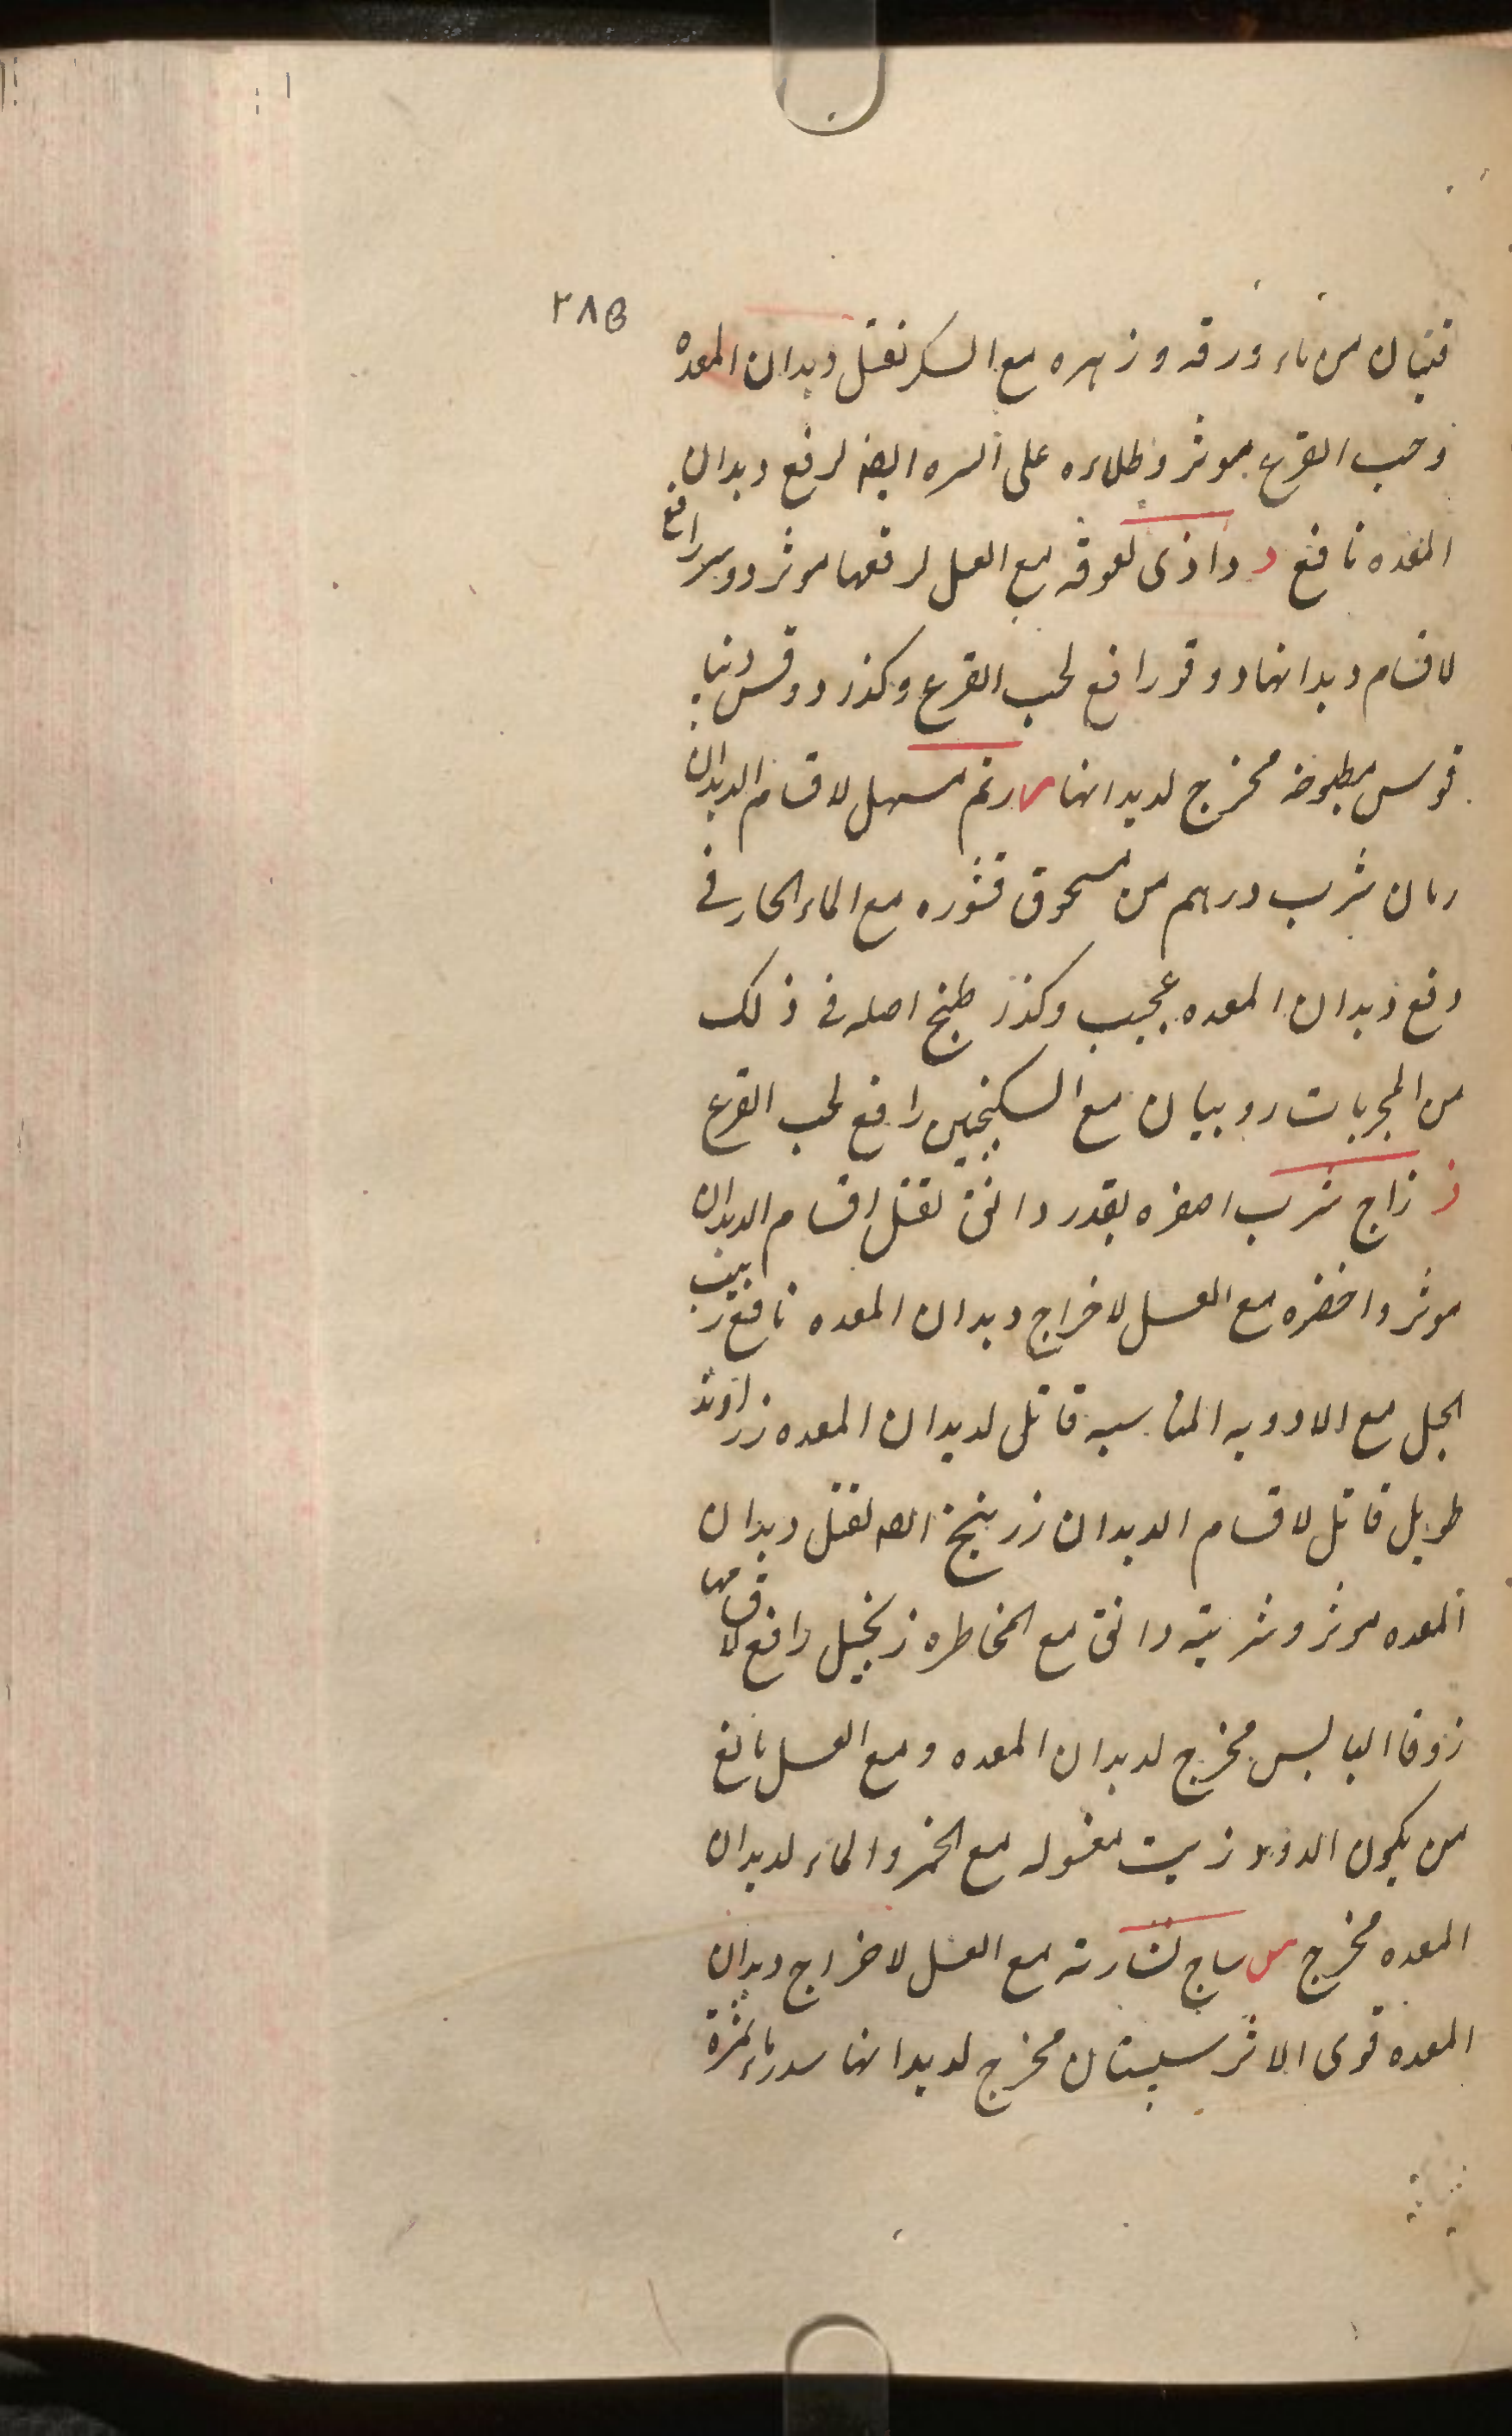 ٢٨٥
قنبان من ماء ورقه و زهره مع السكر لقتل ديدان المعده
وحب القرع موثر وطلاءه على السره ايضا لرفع ديدان
المعده نافع د داذى لعوقه مع العسل لرفعها موثر دوسر رافع
لاقسام ديدانها دوقو رافع لحب القرع وكذر دوقس دنيا
قوس مطبوخه مخرج لديدانها ر رتم مسهل لاقسام الديدان
رمان شرب درهم من مسحوق قشوره مع الماء الحار فى
دفع ديدان المعده عجيب وكذر طبخ اصله فى ذلك
من المجربات روبيان مع السكنجبين رافع لحب القرع
ز زاج شرب اصفره بقدر دانق لقتل اقسام الديدان
موثر واخضره مع العسل لاخراج ديدان المعده نافع زبيب
الجبل مع الادويه المناسبه قاتل لديدان المعده زراوند
طويل قاتل لاقسام الديدان زرنيخ لقتل ديدان
المعده موثر وشربته دانق مع المخاطره زنجبيل رافع لاقسامها
زوفا اليابس مخرج لديدان المعده ومع العسل مانع
من يكون الدود زيت مغسوله مع الخمر والماء لديدان
المعده مخرج س ساج نشارته مع العسل لاخراج ديدان
المعده قوى الاثر سپستان مخرج لديدانها سدر ماء ثمرة